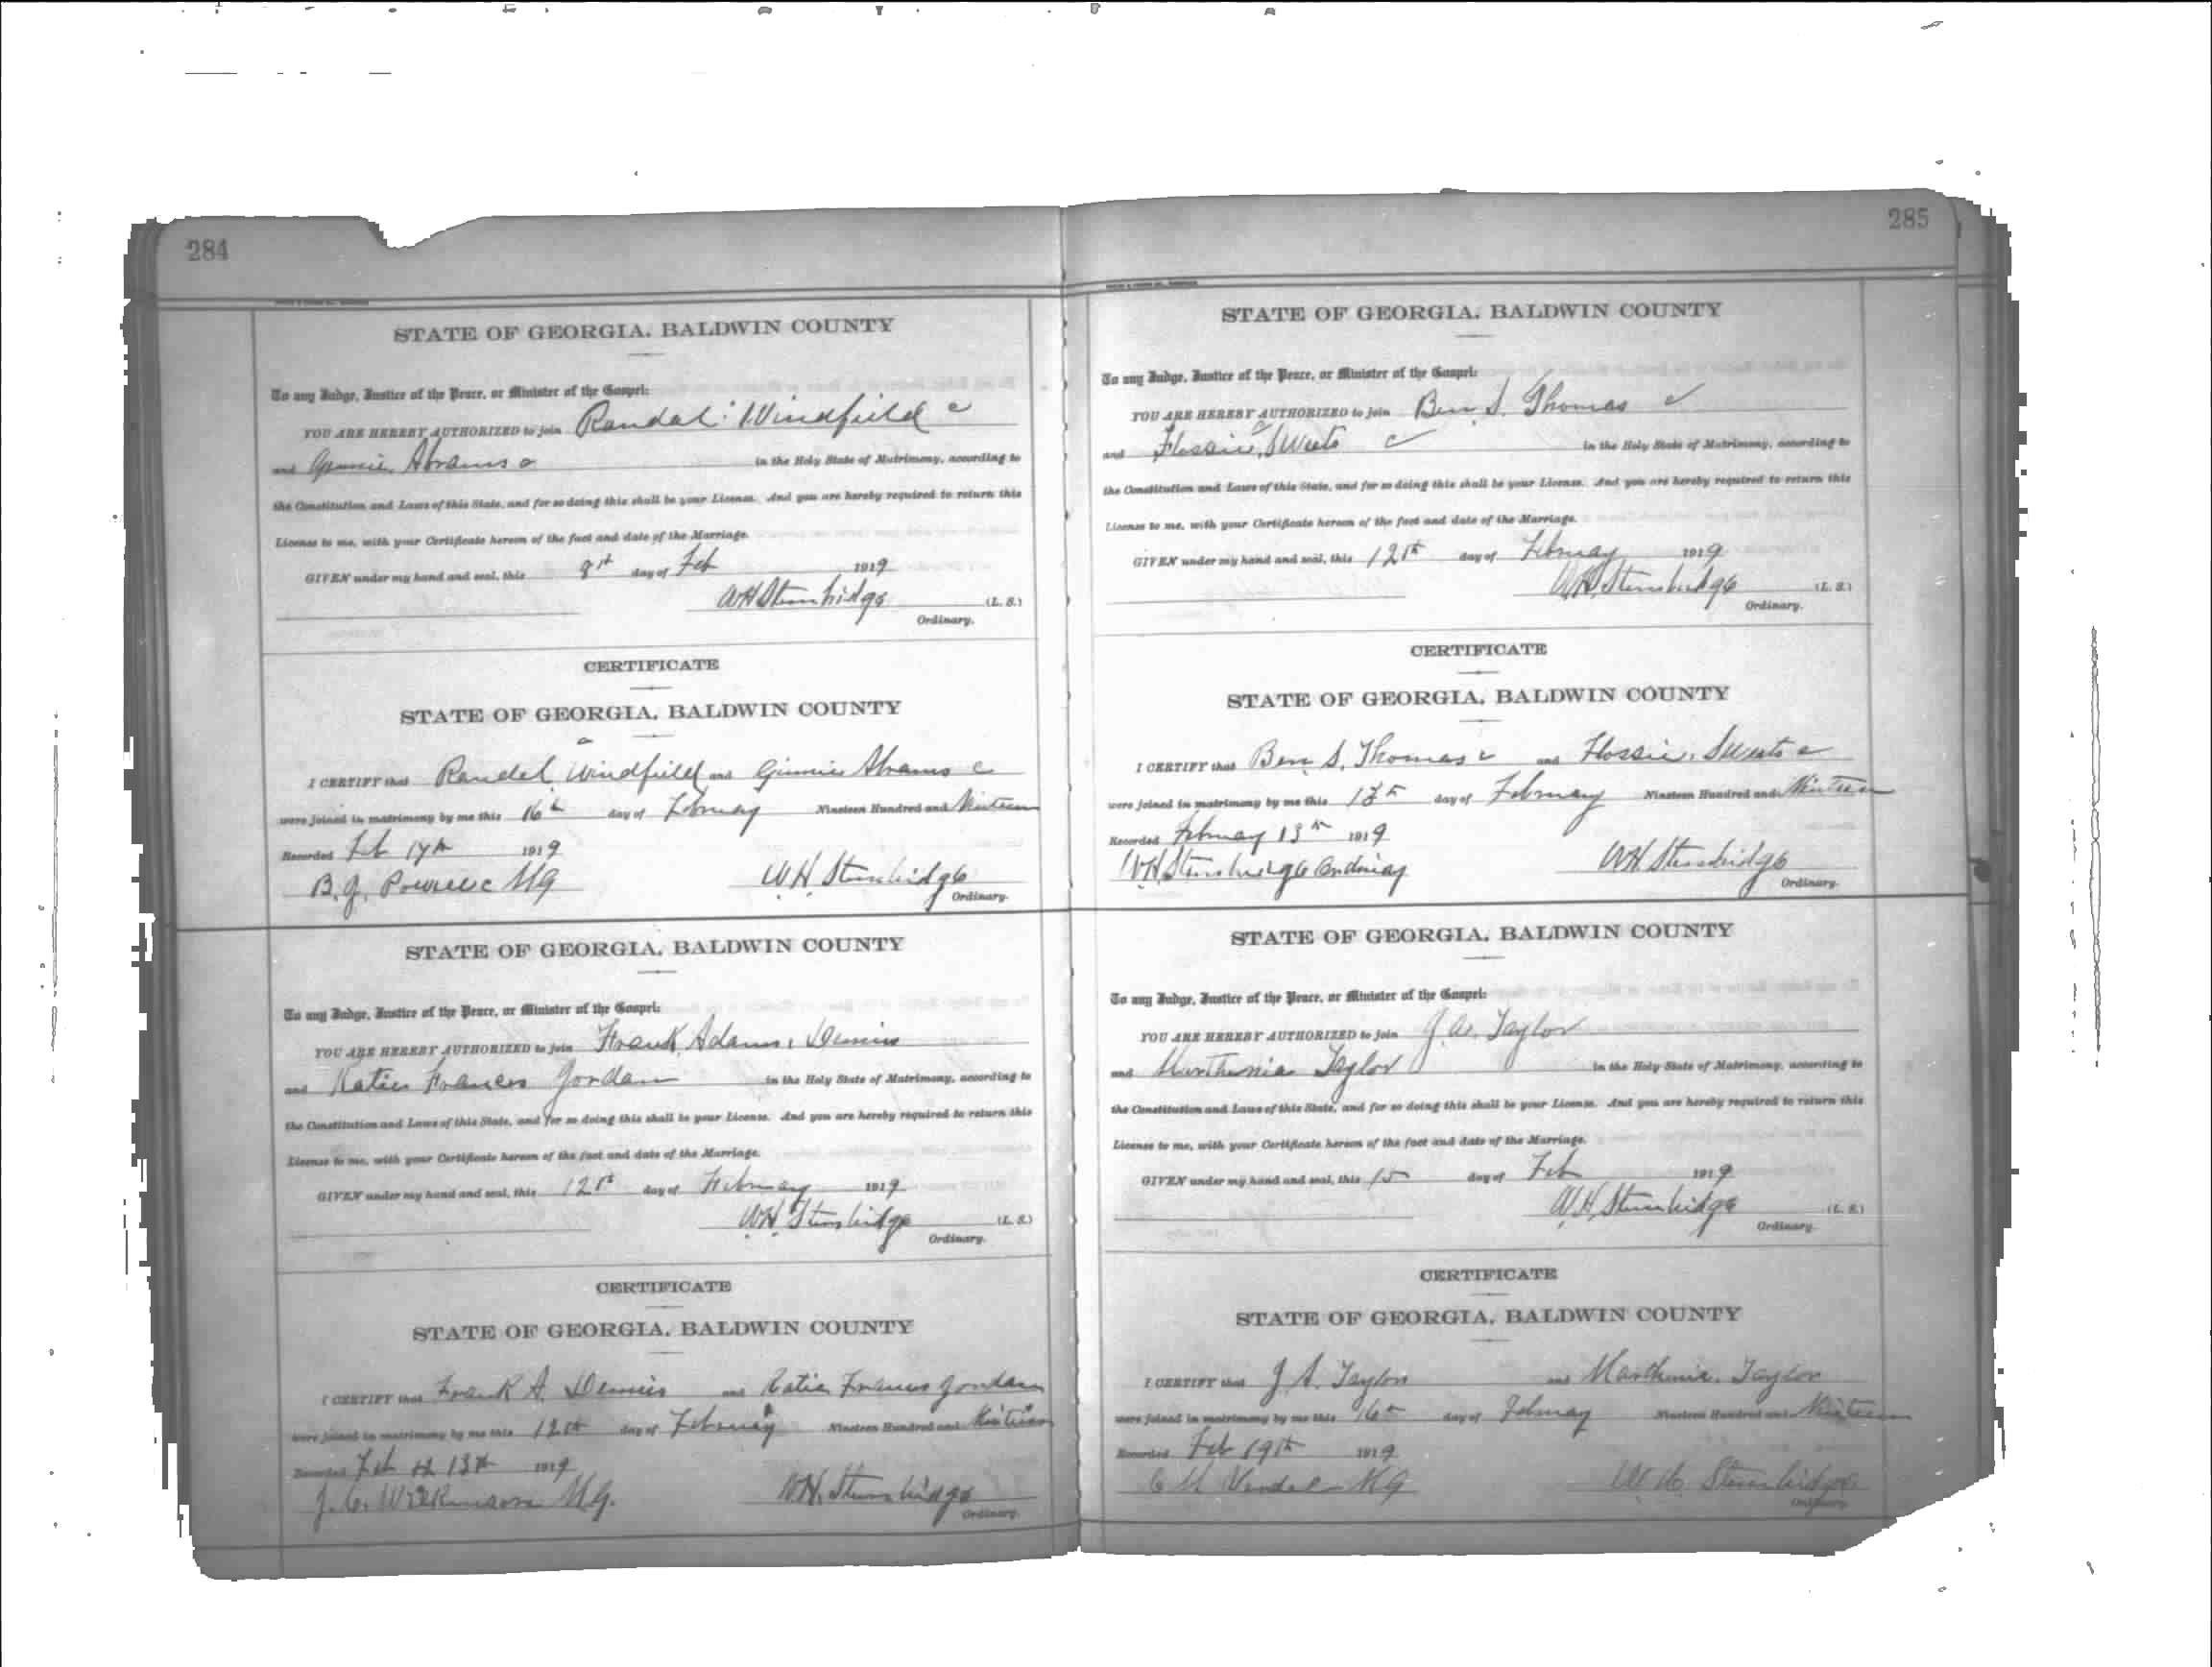 284
STATE OF GEORGIA, BALDWIN COUNTY
To any Judge, Justice of the Peace, or Minister of the Gospel:
YOU ARE HEREBY AUTHORIZED to join Randal Windfield c
and Abrams c in the Holy State of Matrimony, according to
the Constitution and Laws of this State, and for so doing this shall be your License. And you are hereby required to return this
License to me, with your Certificate hereon of the fact and date of the Marriage.
GIVEN under my hand and seal, this 8th day of Feb 1919
WH Stembridge (L. S.)
Ordinary.
CERTIFICATE
STATE OF GEORGIA, BALDWIN COUNTY
I CERTIFY that Randal Windfield and Ginnie Abrams c
were joined in matrimony by me this 16th day of February Nineteen Hundred and Nineteen
Recorded Feb 17th 1919
B. J. MG W.H. Stembridge
Ordinary.
STATE OF GEORGIA, BALDWIN COUNTY
To any Judge, Justice of the Peace, or Minister of the Gospel:
YOU ARE HEREBY AUTHORIZED to join Frank Adams Dennis
and Katie Frances Jordan in the Holy State of Matrimony, according to
the Constitution and Laws of this State, and for so doing this shall be your License. And you are hereby required to return this
License to me, with your Certificate hereon of the fact and date of the Marriage.
GIVEN under my hand and seal, this 12th day of February 1919
W.H. Stembridge (L. S.)
Ordinary.
CERTIFICATE
STATE OF GEORGIA, BALDWIN COUNTY
I CERTIFY that Frank A. Dennis and Katie Frances Jordan
were joined in matrimony by me this 12th day of February Nineteen Hundred and Nineteen
Recorded Feb 13th 1919
J. C. Wilkinson M.G. W.H. Stembridge
Ordinary.
285
STATE OF GEORGIA, BALDWIN COUNTY
To any Judge, Justice of the Peace, or Minister of the Gospel:
YOU ARE HEREBY AUTHORIZED to join Ben S. Thomas c
and Flossie Sweets c in the Holy State of Matrimony, according to
the Constitution and Laws of this State, and for so doing this shall be your License. And you are hereby required to return this
License to me, with your Certificate hereon of the fact and date of the Marriage.
GIVEN under my hand and seal, this 12th day of February 1919
W.H. Stembridge (L. S.)
Ordinary.
CERTIFICATE
STATE OF GEORGIA, BALDWIN COUNTY
I CERTIFY that Ben S. Thomas c and Flossie Sweets c
were joined in matrimony by me this 13th day of February Nineteen Hundred and Nineteen
Recorded February 13th 1919
W.H. Stembridge Ordinary WH Stembridge
Ordinary.
STATE OF GEORGIA, BALDWIN COUNTY
To any Judge, Justice of the Peace, or Minister of the Gospel:
YOU ARE HEREBY AUTHORIZED to join J. A. Taylor
and Marthenia Taylor in the Holy State of Matrimony, according to
the Constitution and Laws of this State, and for so doing this shall be your License. And you are hereby required to return this
License to me, with your Certificate hereon of the fact and date of the Marriage.
GIVEN under my hand and seal, this 15 day of Feb 1919
W.H. Stembridge (L. S.)
Ordinary.
CERTIFICATE
STATE OF GEORGIA, BALDWIN COUNTY
I CERTIFY that J. A. Taylor and Marthenia Taylor
were joined in matrimony by me this 16th day of February Nineteen Hundred and Nineteen
Recorded Feb 19th 1919
MG W. H. Stembridge
Ordinary.